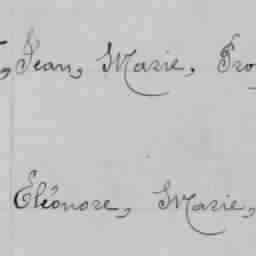 , Jean, Marie, Fro
Eléonore, Marie,